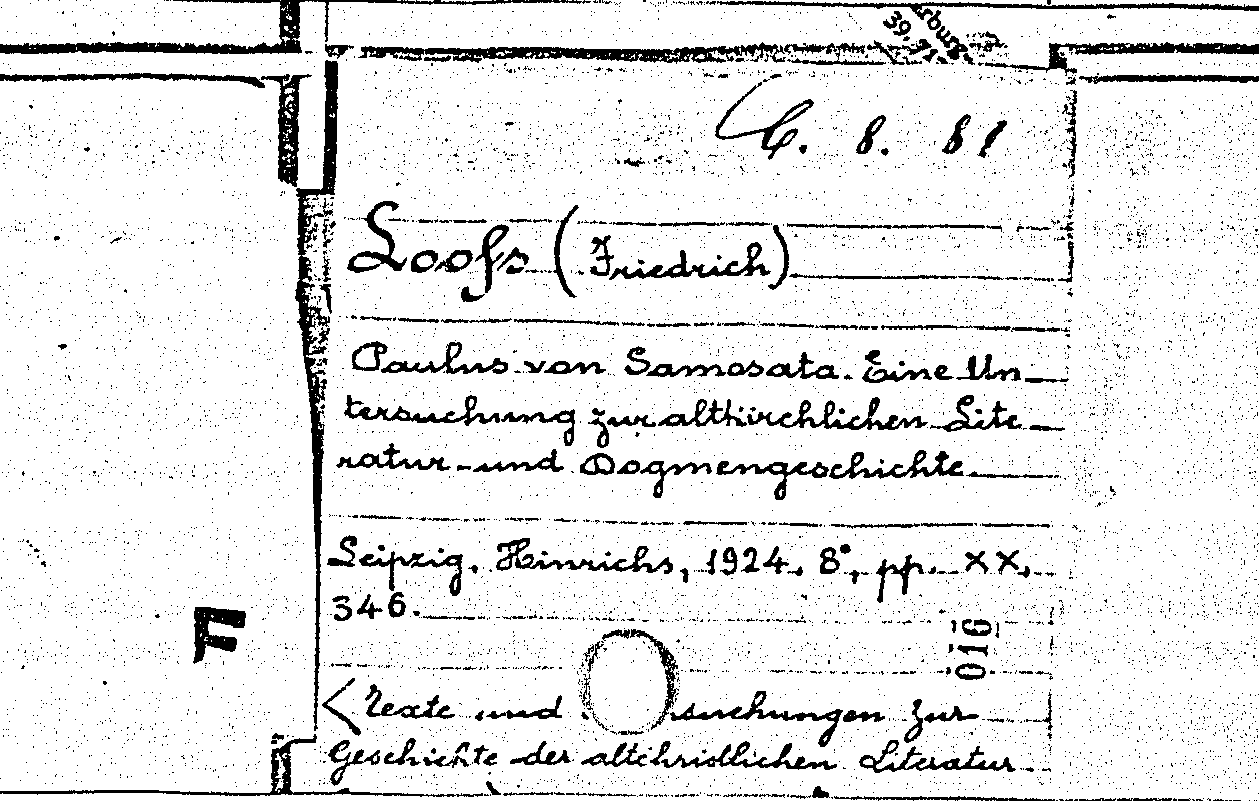 39.71
C. 8. 81
Loofs (Friedrich)
Paulus von Samosata. Eine Un-
tersuchung zur altkirchlichen Lite-
ratur- und Dogmengeschichte.
Leipzig, Hinrichs, 1924, 8°, pp. XX,
346.
F
016
<Texte und suchungen zur
Geschichte der altchristlichen Literatur